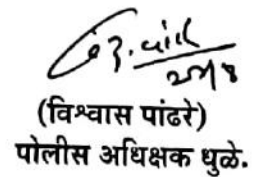 (विश्वास पांढरे)
पोलीस अधिक्षक धुळे.